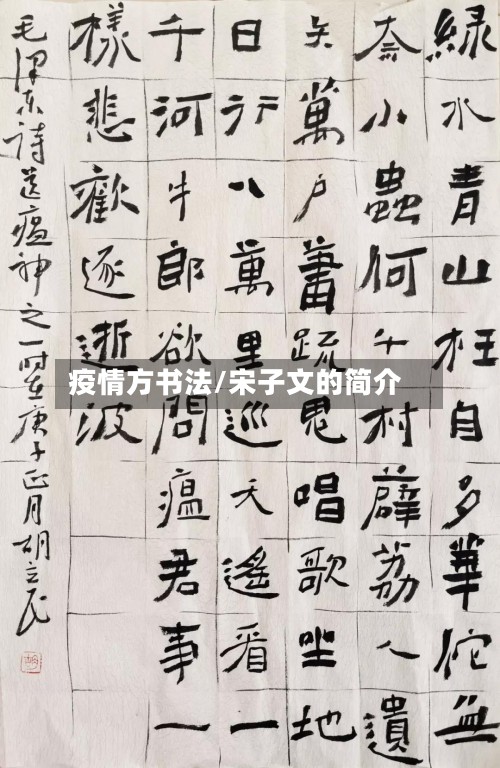 綠水青山枉自多華佗無
奈小蟲何千村薜荔人遺
矢萬戶蕭疏鬼唱歌坐地
日行八萬里巡天遙看一
千河牛郎欲問瘟君事一
樣悲歡逐逝波
毛泽东詩送瘟神之一时在庚子正月胡立民
疫情方书法/宋子文的简介